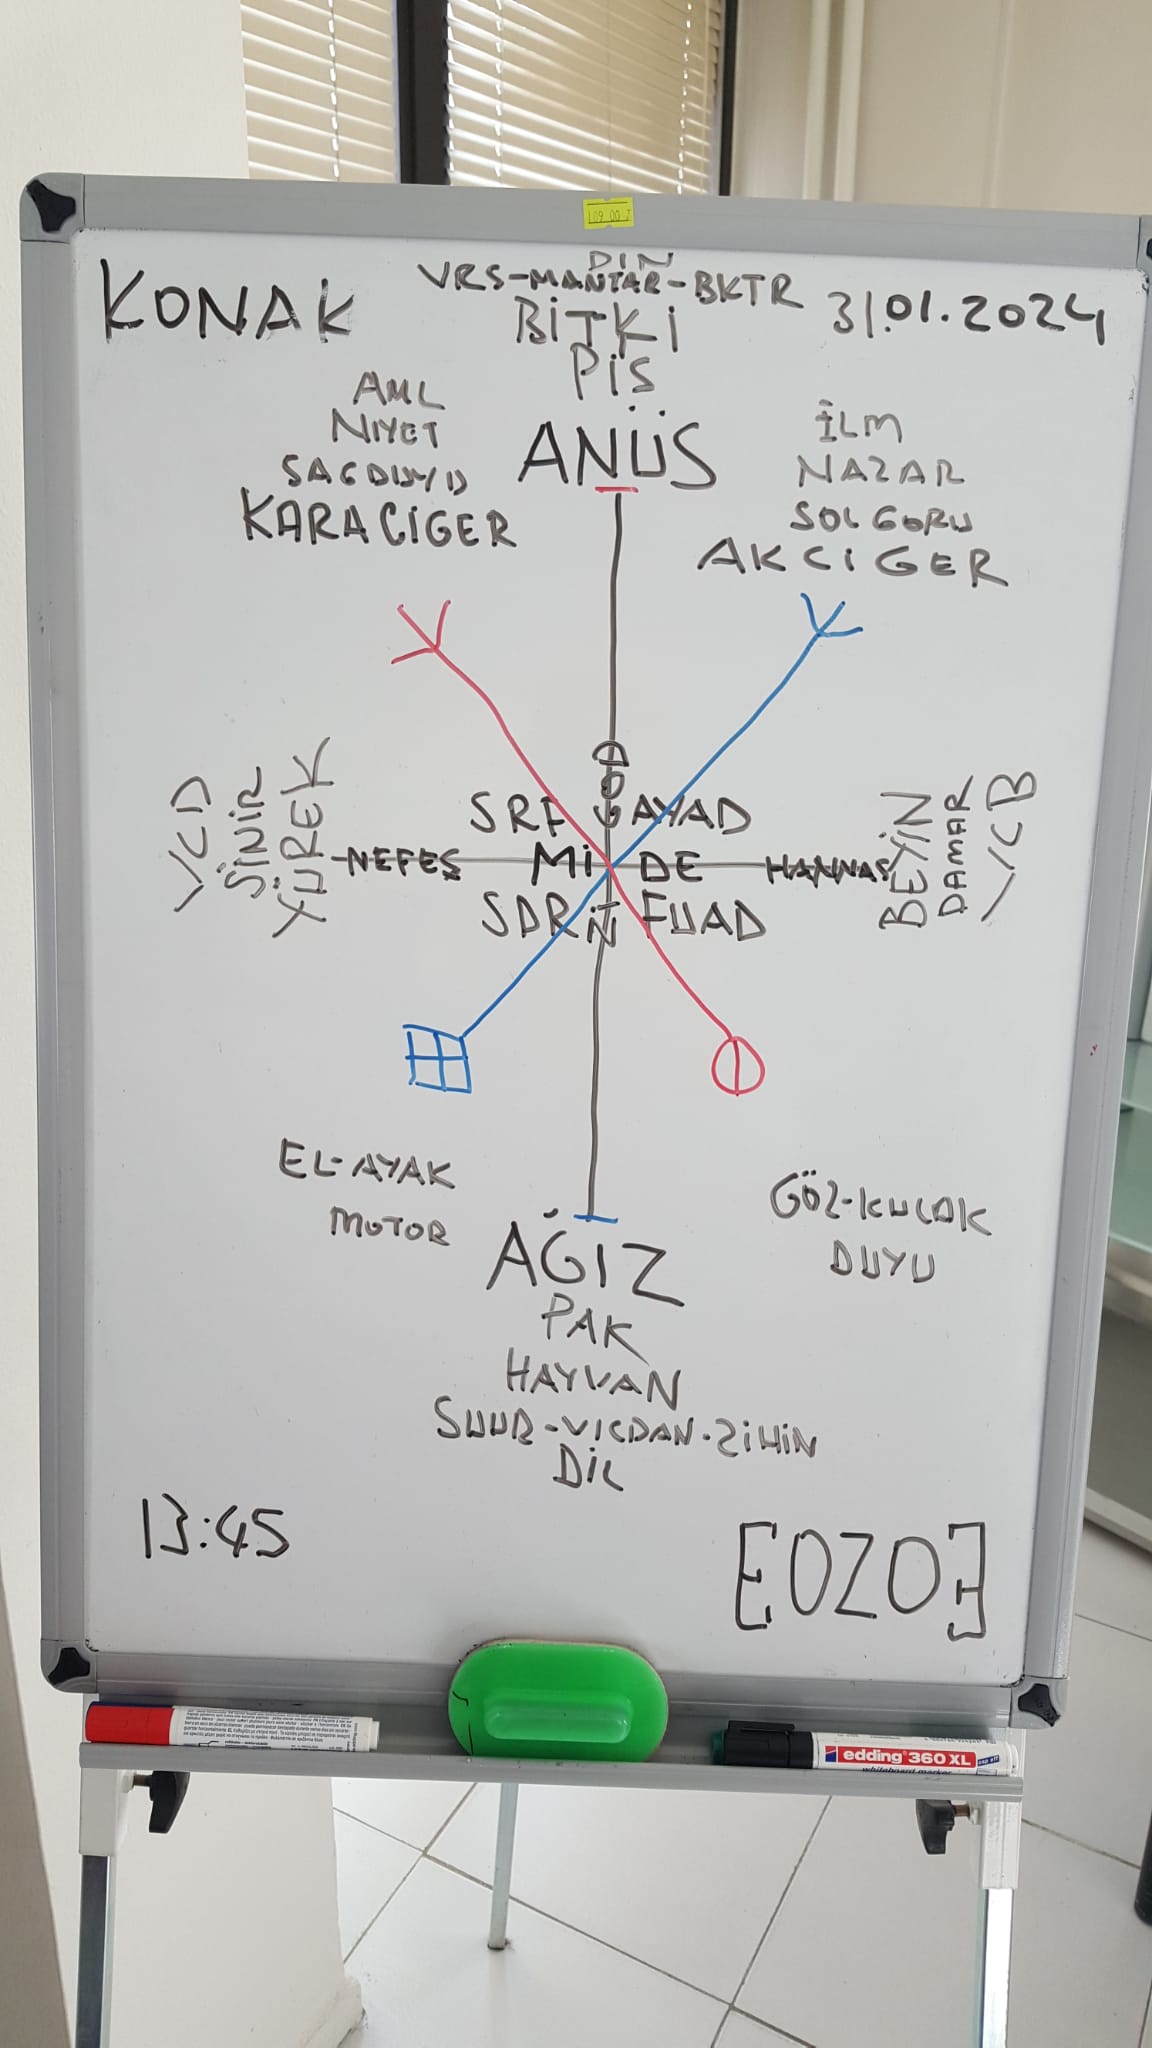 KONAK
DİN
VRS-MANTAR-BKTR
31.01.2024
BİTKİ
PİS
ANÜS
AML
NIYET
SAGDUYU
KARACİGER
İLM
NAZAR
SOL GORU
AKCIGER
VCD
SİNİR
YÜREK
NEFES
SRF
AYAD
Mİ DE
SDR
FUAD
HANNAS
BEYİN
DAMAR
VCB
EL-AYAK
MOTOR
GÖZ-KULAK
DUYU
AĞIZ
PAK
HAYVAN
SUUR-VICDAN-ZİHİN
DİL
13:45
[OZO]
edding 360 XL
whiteboard marker